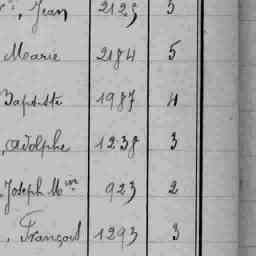 , Jean 2125 5
Marie 2184 5
Baptiste 1987 4
, Adolphe 1238 3
Joseph M<sup>in</sup> 923 2
, François 1293 3